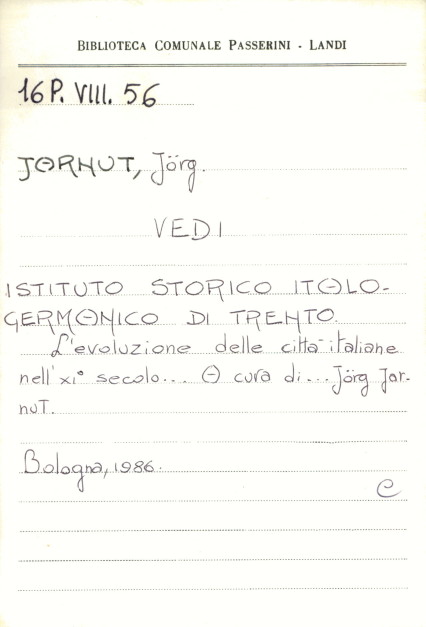 BIBLIOTECA COMUNALE PASSERINI - LANDI
16 P. VIII. 56
JARNUT, Jörg.
VEDI
ISTITUTO STORICO ITALO-
GERMANICO DI TRENTO.
L'evoluzione delle città italiane
nell'XI° secolo... A cura di... Jörg Jar-
nut.
Bologna, 1986.
C